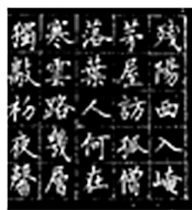 殘陽西入崦
茅屋訪孤僧
落葉人何在
寒雲路幾層
獨敲初夜磬